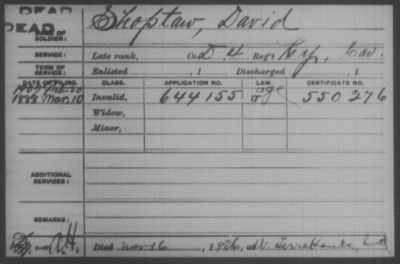 DEAD
DEAD
NAME OF SOLDIER: Shoptaw, David
SERVICE: Late rank, Co. D 4 Reg't Ky. Cav.
TERM OF SERVICE: Enlisted , 1 Discharged , 1
DATE OF FILING. CLASS. APPLICATION NO. LAW. CERTIFICATE NO.
1907 Feb-20 age
1888 Mar. 10 Invalid, 644155 J 550276
Widow,
Minor,
ADDITIONAL SERVICES:
REMARKS:
Died Nov 16, 1926, at V. Terre Haute, Ind